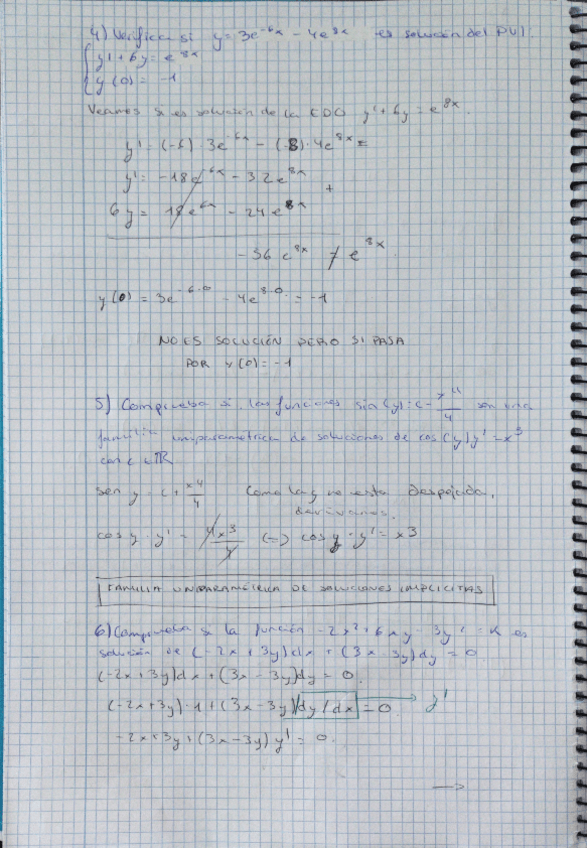 4) Verifica si y = 3e^-6x - 4e^8x es solución del PVI.
y' + 6y = e^8x
y(0) = -1
Veamos si es solución de la EDO y' + 6y = e^8x.
y' = (-6)·3e^-6x - (8)·4e^8x =
y' = -18e^-6x - 32e^8x
+
6y = 18e^-6x - 24e^8x
-36 e^8x ≠ e^8x
y(0) = 3e^-6·0 - 4e^8·0 = -1
NO ES SOLUCIÓN PERO SI PASA
POR y(0) = -1
5) Comprueba si las funciones sin(y) = c - x^4/4 son una
familia uniparamétrica de soluciones de cos(y)y' = x^3
con c ∈ ℝ
sen y = c + x^4/4 Como la y no esta despejada,
derivamos.
cos y · y' = 4x^3/4 <=> cos y · y' = x^3
FAMILIA UNIPARAMÉTRICA DE SOLUCIONES IMPLICITAS
6) Comprueba si la función -2x^2 + 6xy - 3y^2 = K es
solución de (-2x + 3y)dx + (3x - 3y)dy = 0
(-2x + 3y)dx + (3x - 3y)dy = 0.
(-2x + 3y)·1 + (3x - 3y)(dy/dx) = 0 → y'
-2x + 3y + (3x - 3y) y' = 0.
→